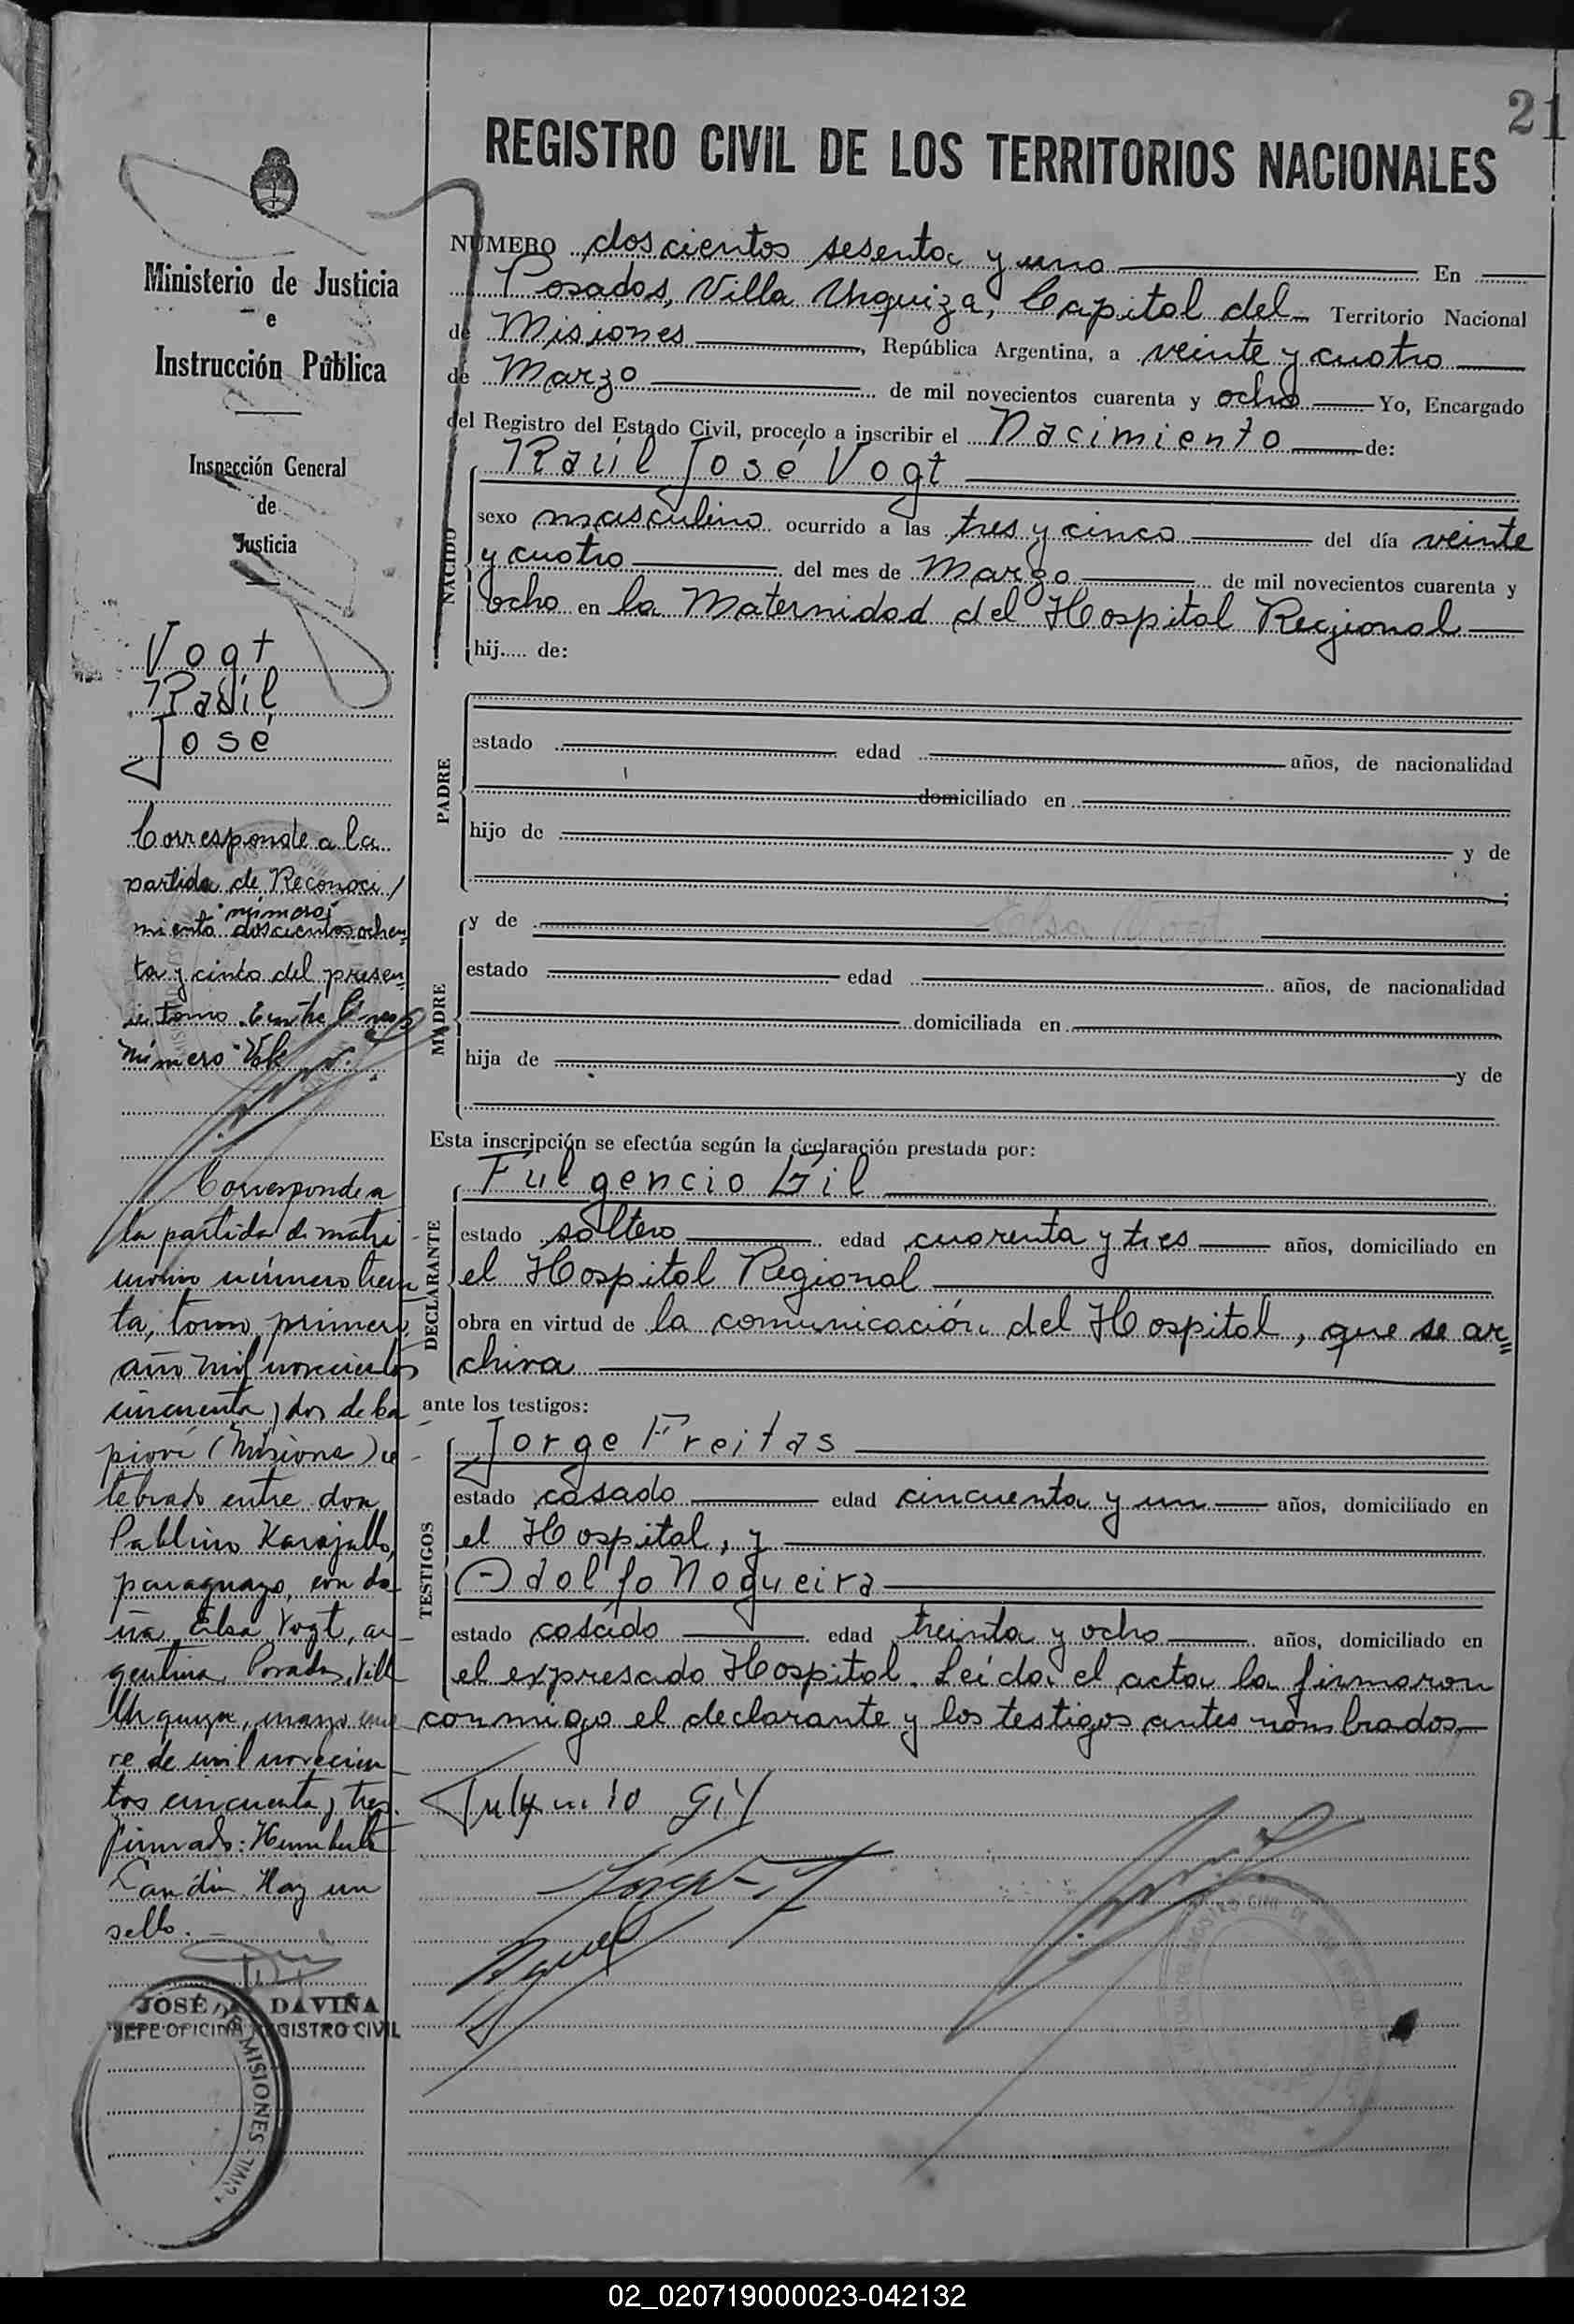 21
REGISTRO CIVIL DE LOS TERRITORIOS NACIONALES
Ministerio de Justicia
e
Instrucción Pública
Inspección General
de
Justicia
Vogt
Raúl
José
Corresponde a la
partida de Reconoci/
número
miento doscientos ochen
ta y cinco del presen
te tomo. Entre líneas
número "Vale
Corresponde a
la partida de matri
monio número trein
ta, tomo primero,
año mil novecientos
cincuenta y dos de Ca
pioví (Misiones) ce
lebrado entre don
Pablino Karajallo,
paraguayo, con do
ña Elsa Vogt, ar
gentina. Posadas, Villa
Urquiza, marzo
re de mil novecien
tos cincuenta y tres.
Firmado: Humberto
Landin. Hay un
sello.
JOSÉ DAVIÑA
JEFE OFICINA REGISTRO CIVIL
MISIONES
CIVIL
NÚMERO doscientos sesenta y uno En
Posadas, Villa Urquiza, Capital del Territorio Nacional
de Misiones, República Argentina, a veinte y cuatro
de Marzo de mil novecientos cuarenta y ocho Yo, Encargado
del Registro del Estado Civil, procedo a inscribir el Nacimiento de:
NACIDO
Raúl José Vogt
sexo masculino ocurrido a las tres y cinco del día veinte
y cuatro del mes de Marzo de mil novecientos cuarenta y
ocho en la Maternidad del Hospital Regional
hij..... de:
PADRE
estado edad años, de nacionalidad
domiciliado en
hijo de y de
MADRE
y de Elsa Vogt
estado edad años, de nacionalidad
domiciliada en
hija de y de
Esta inscripción se efectúa según la declaración prestada por:
DECLARANTE
Fulgencio Gil
estado soltero edad cuarenta y tres años, domiciliado en
el Hospital Regional
obra en virtud de la comunicación del Hospital, que se ar=
chiva
ante los testigos:
TESTIGOS
Jorge Freitas
estado casado edad cincuenta y un años, domiciliado en
el Hospital, y
Adolfo Nogueira
estado casado edad treinta y ocho años, domiciliado en
el expresado Hospital. Leída el acta la firmaron
conmigo el declarante y los testigos antes nombrados
Fulgencio Gil
02_020719000023-042132